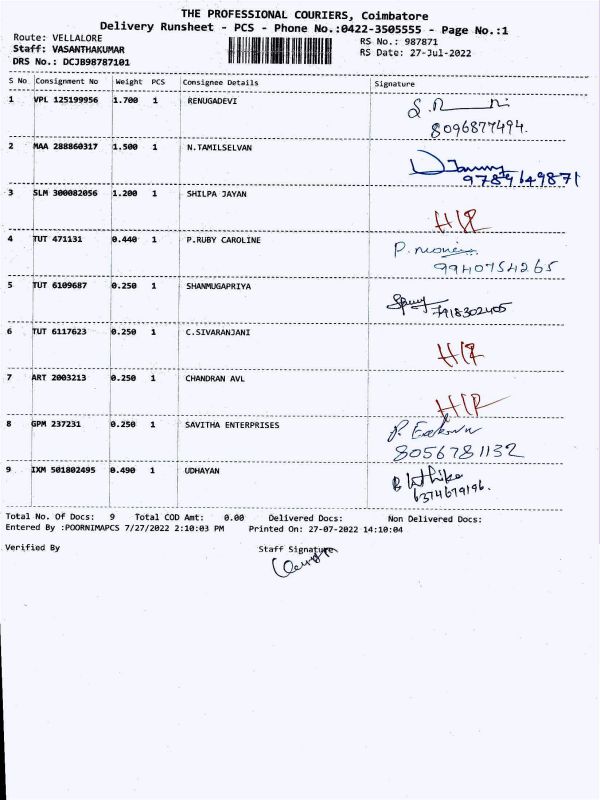 THE PROFESSIONAL COURIERS, Coimbatore
Delivery Runsheet - PCS - Phone No.:0422-3505555 - Page No.:1
Route: VELLALORE
RS No.: 987871
Staff: VASANTHAKUMAR
RS Date: 27-Jul-2022
DRS No.: DCJB98787101
S No Consignment No Weight PCS Consignee Details Signature
1 VPL 125199956 1.700 1 RENUGADEVI
8096877494.
2 MAA 288860317 1.500 1 N.TAMILSELVAN
9789649871
3 SLM 300082056 1.200 1 SHILPA JAYAN
4 TUT 471131 0.440 1 P.RUBY CAROLINE
9940754265
5 TUT 6109687 0.250 1 SHANMUGAPRIYA
7918302405
6 TUT 6117623 0.250 1 C.SIVARANJANI
7 ART 2003213 0.250 1 CHANDRAN AVL
8 GPM 237231 0.250 1 SAVITHA ENTERPRISES
8056781132
9 IXM 501802495 0.490 1 UDHAYAN
6374679196.
Total No. Of Docs: 9 Total COD Amt: 0.00 Delivered Docs: Non Delivered Docs:
Entered By :POORNIMAPCS 7/27/2022 2:10:03 PM Printed On: 27-07-2022 14:10:04
Verified By Staff Signature